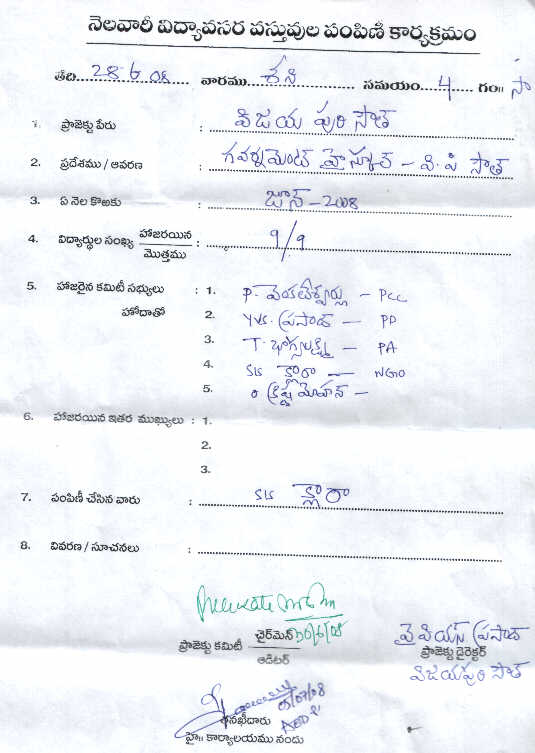 నెలవారీ విద్యావసర వస్తువుల పంపిణీ కార్యక్రమం
తేది...28.6.08... వారము...శని... సమయం...4... గం॥ సా
1. ప్రాజెక్టు పేరు : విజయ పురి సౌత్
2. ప్రదేశము / ఆవరణ : గవర్నమెంట్ హైస్కూల్ - వి. పి సౌత్
3. ఏ నెల కొఱకు : జూన్ - 2008
4. విద్యార్థుల సంఖ్య హాజరయిన / మొత్తము : 9/9
5. హాజరైన కమిటీ సభ్యులు : 1. P. వెంకటేశ్వర్లు - PCC
హోదాతో 2. YVS. ప్రసాద్ - PD
3. T. భాగ్యలక్ష్మి - PA
4. SIS క్లారా - NGO
5. క్రిష్ణ మోహన్ -
6. హాజరయిన ఇతర ముఖ్యులు : 1.
2.
3.
7. పంపిణీ చేసిన వారు : SIS క్లారా
8. వివరణ / సూచనలు :
ప్రాజెక్టు కమిటీ ఛైర్మెన్ 30/6/08
ఆడిటర్
వై వి యస్ ప్రసాద్
ప్రాజెక్టు డైరెక్టర్
విజయపురి సౌత్
01/07/08
తనఖీదారు
హై॥ కార్యాలయము నందు